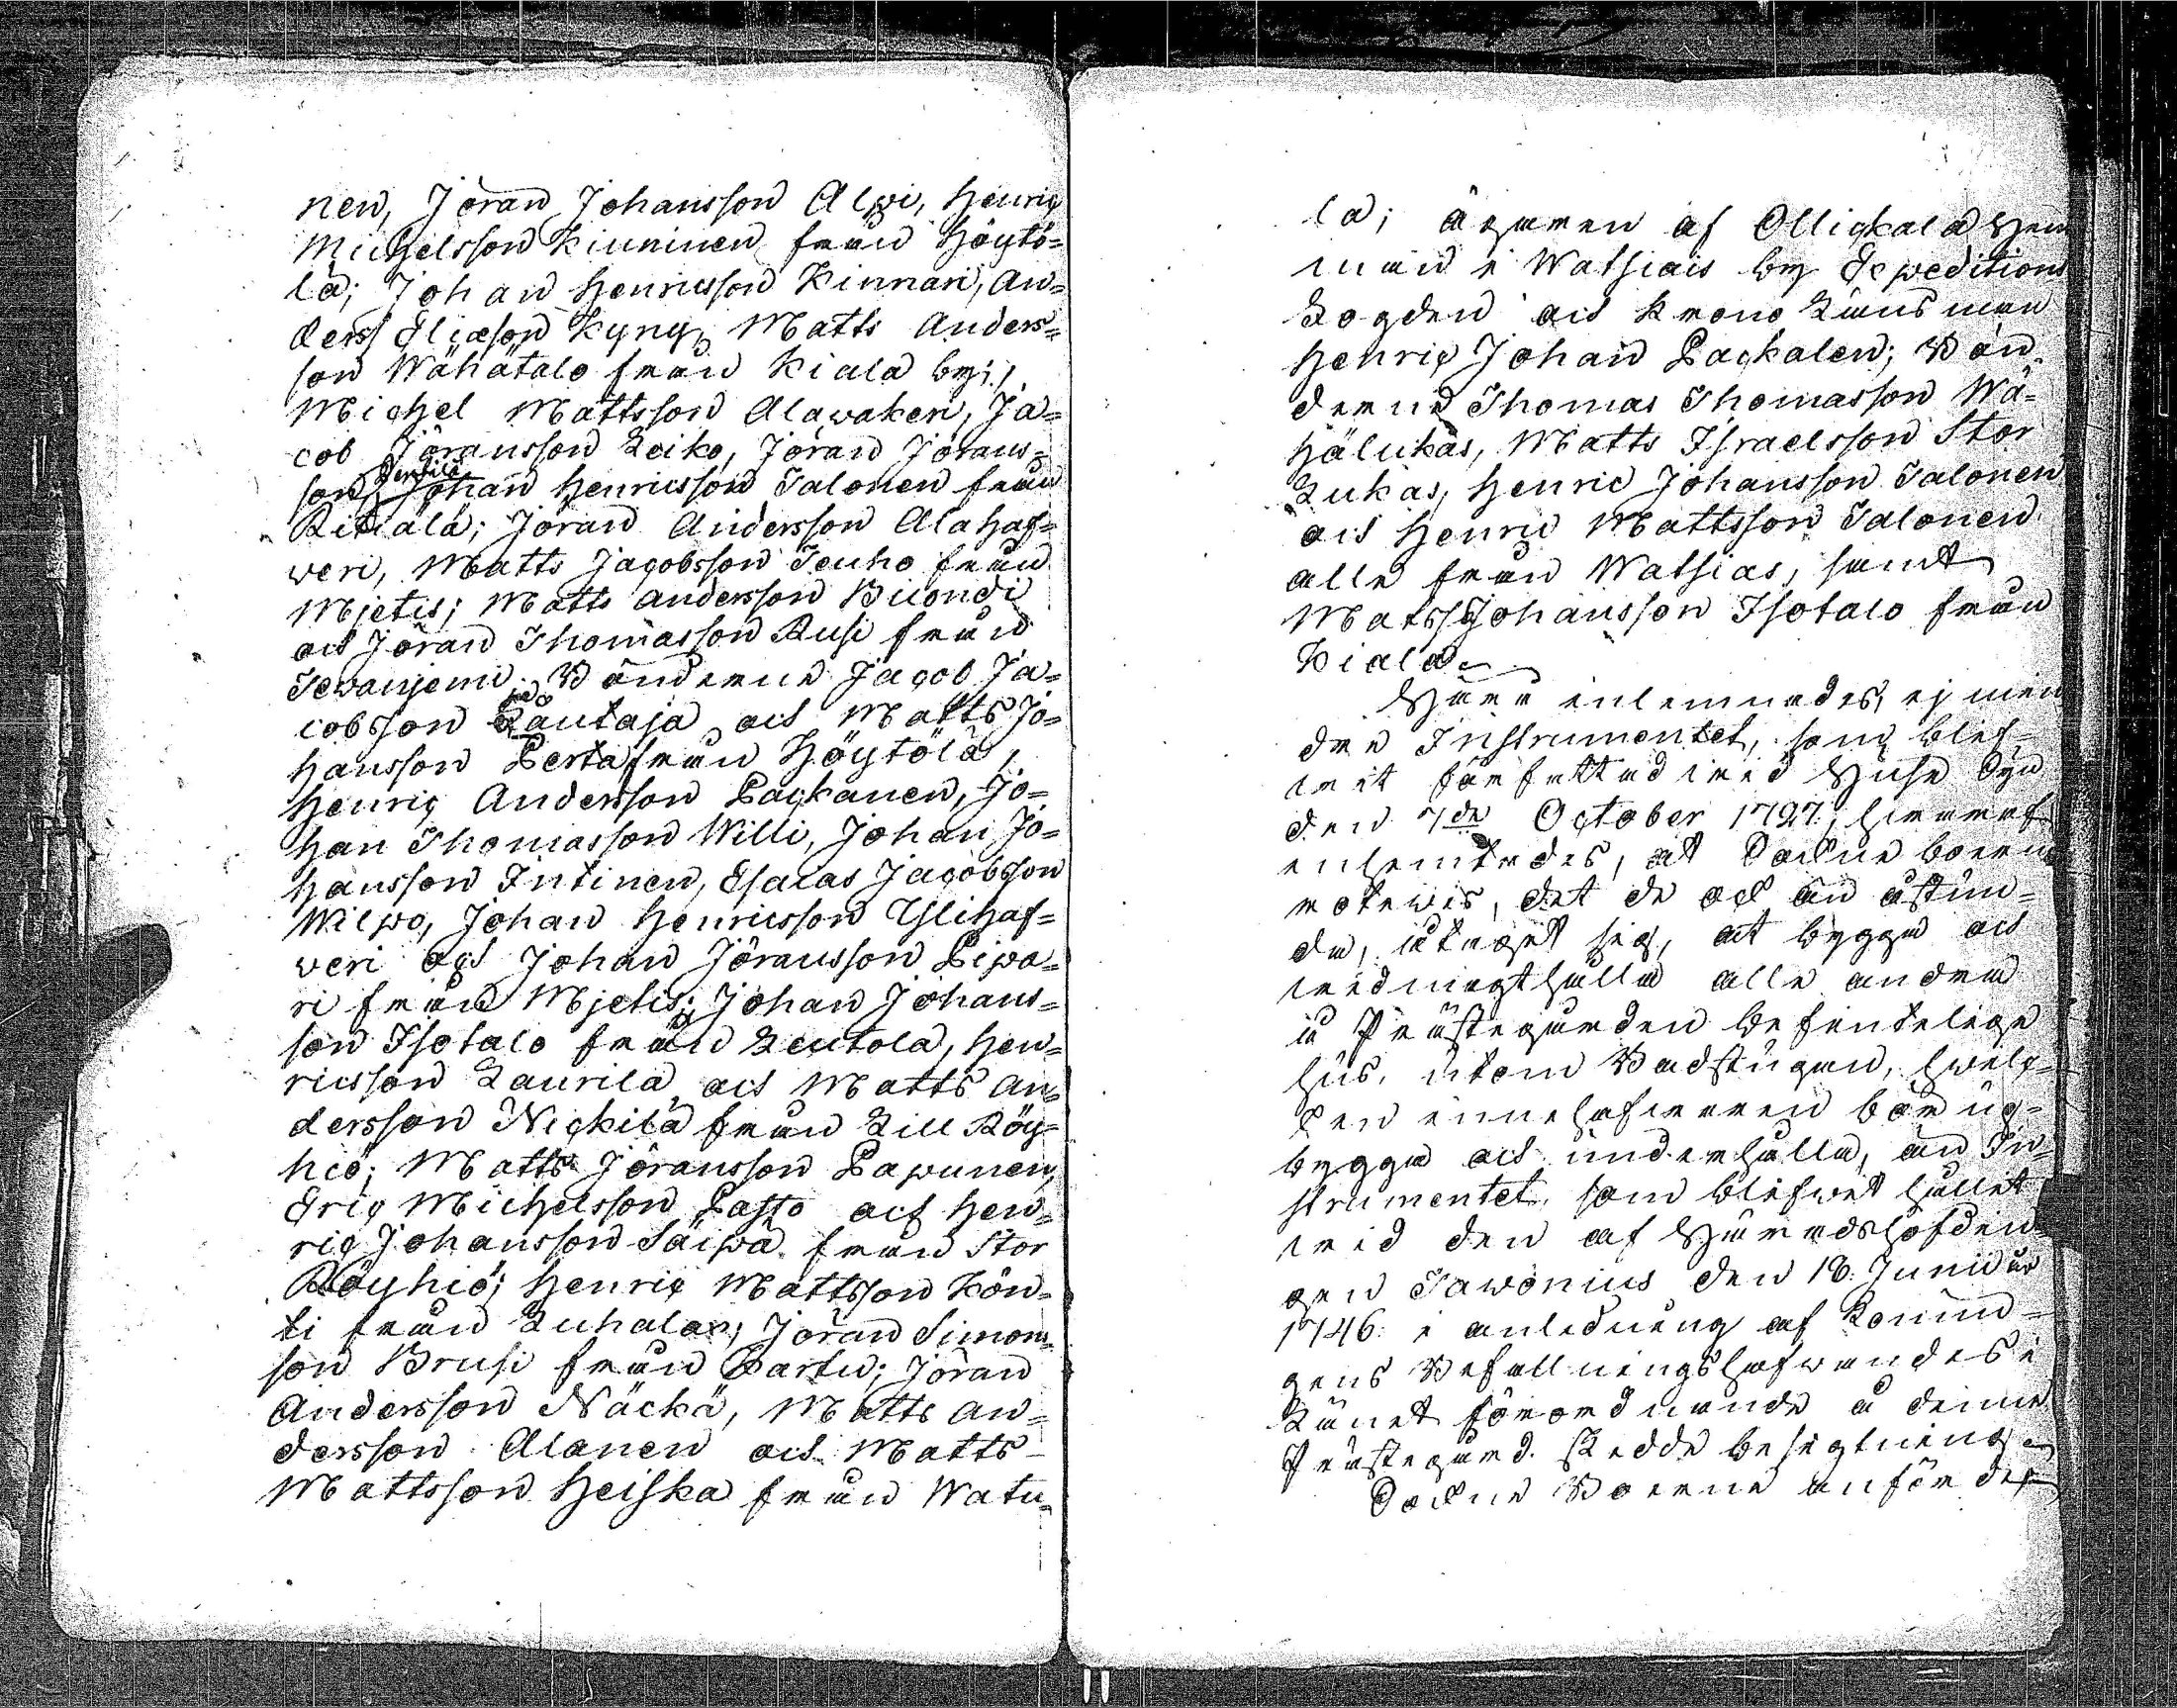 nen, Jöran Johansson Alvi, Henric
Michelsson Kinninen från Höytö-
lä; Johan Henricsson Kinnari, An-
ders Eliæson Kyny, Matts Anders-
son Wähätalo från Kiala by;
Michel Mattsson Alawaken, Ja-
cob Jöransson Leiko, Jöran Jörans-
son Perttilä Johan Henricsson Talonen från
Ritiälä; Jöran Andersson Alahaf-
veri, Matts Jacobsson Teuho från
Mjetis; Matts Andersson Buondi
och Jöran Thomasson Rusi från
Tevanjemi. Bönderne Jacob Ja-
cobsson Lautaja och Matts Jo-
hansson Perta från Höytölä,
Henric Andersson Packanen, Jo-
han Thomasson Willi, Johan Jo-
hansson Intinen, Esaias Jacobsson
Wilpo, Johan Henricsson Ylihaf-
veri och Johan Jöransson Piipa-
ri från Mjetis; Johan Johans-
son Isotalo från Leutola, Hen-
ricsson Laurila och Matts An-
dersson Nickilä från Lill Röy-
hiö; Matts Jöransson Papunen,
Eric Michelsson Pasto och Hen-
ric Johansson Säipä från Stor
Röyhiö; Henric Mattsson Kön-
ti från Luhalax; Jöran Simons-
son Brusi från Partu; Jöran
Andersson Näckä, Matts An-
dersson Alanen och Matts
Mattsson Heiska från Watu-
la; ägaren af Ollickala Hem
man i Watsiais by Expeditions
Fogden och Krono Länsman
Henric Johan Packalen; Bön-
derne Thomas Thomasson Wä-
hälukas, Matts Israelsson Stor
Lukas, Henric Johansson Talonen
och Henric Mattsson Talonen
alle från Watsias, samt
Matts Johansson Isotalo från
Kiala.
Häre inlemnades, ej min
dre Instrumentet, som blif-
vit författad vid Huse Syn
den 7de October 1727, hvaraf
inhemtades, at Sockne boerne
rotevis, det de ock än åstun-
da, åtagit sig, at bygga och
vidmagthålla alle andra
å Prästegården befintelige
hus, utom Badstugan, hvilc-
ken innehafvaren bör up-
bygga och underhålla, än In-
strumentet, som blifvit hållit
vid den af Häradshöfdin
gen Tawonius den 18. Junii år
1746. i anledning af Konun-
gens Befallningshafvandes i
Länet förordnande å denne
Prästegård skedde besigtning.
Sockne Boerne anförde,